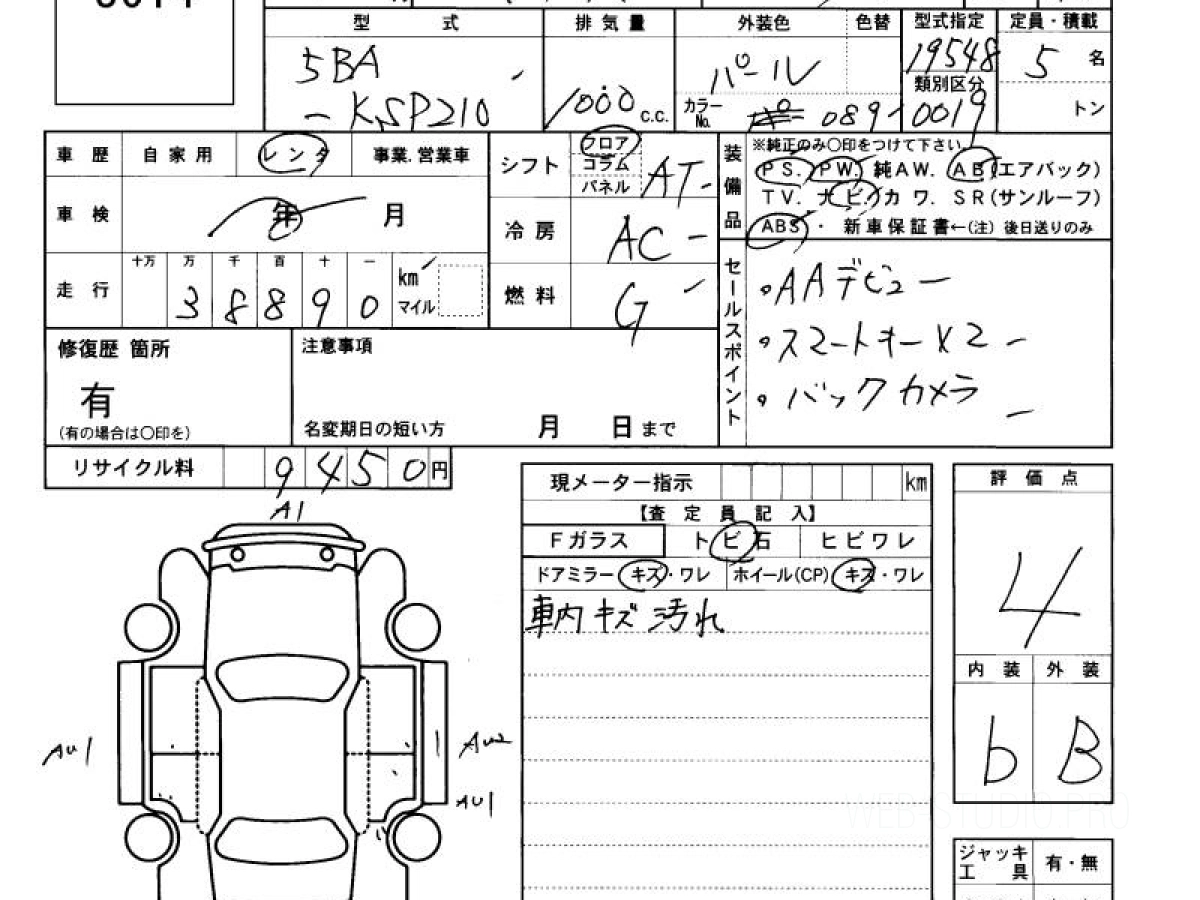 型式 排気量 外装色 色替 型式指定 定員・積載
5BA パール 19548 5 名
類別区分
- KSP210 1000 c.c. カラーNo. 089 0019 トン
車歴 自家用 レンタ 事業.営業車 シフト フロア コラム パネル AT
装備品 ※純正のみ〇印をつけて下さい。
PS. PW. 純AW. AB(エアバッグ)
TV. ナビ. カワ. SR(サンルーフ)
ABS ・ 新車保証書←(注) 後日送りのみ
車検 年 月 冷房 AC
走行 十万 万 千 百 十 一
38890 km マイル 燃料 G
セールスポイント
・AAデビュー
・スマートキーX2
・バックカメラ
修復歴 箇所 注意事項
有
(有の場合は〇印を) 名変期日の短い方 月 日 まで
リサイクル料 9450円
現メーター指示 km 評価点
【査定員記入】
Fガラス トビ石 ヒビワレ 4
ドアミラー キズ・ワレ ホイール(CP) キズ・ワレ
車内キズ汚れ
内装 外装
b B
A1
AU1 AU2
AU1
WEB-STUDIO.PRO
ジャッキ 有・無
工具